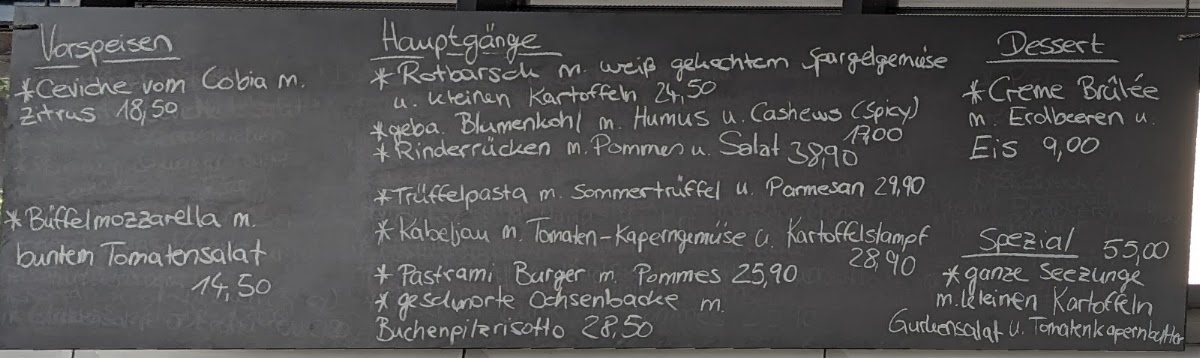 Vorspeisen
*Ceviche vom Cobia m.
Zitrus 18,50
*Büffelmozzarella m.
buntem Tomatensalat
14,50
Hauptgänge
*Rotbarsch m. weiß gekochtem Spargelgemüse
u. kleinen Kartoffeln 24,50
*geba. Blumenkohl m. Humus u. Cashews (Spicy)
17,00
*Rinderrücken m. Pommes u. Salat 38,90
*Trüffelpasta m. Sommertrüffel u. Parmesan 29,90
*Kabeljau m. Tomaten-Kaperngemüse u. Kartoffelstampf
28,90
*Pastrami Burger m. Pommes 25,90
*geschmorte Ochsenbacke m.
Buchenpilzrisotto 28,50
Dessert
*Creme Brûlée
m. Erdbeeren u.
Eis 9,00
Spezial 55,00
*ganze Seezunge
m. kleinen Kartoffeln
Gurkensalat u. Tomatenkapernbutter